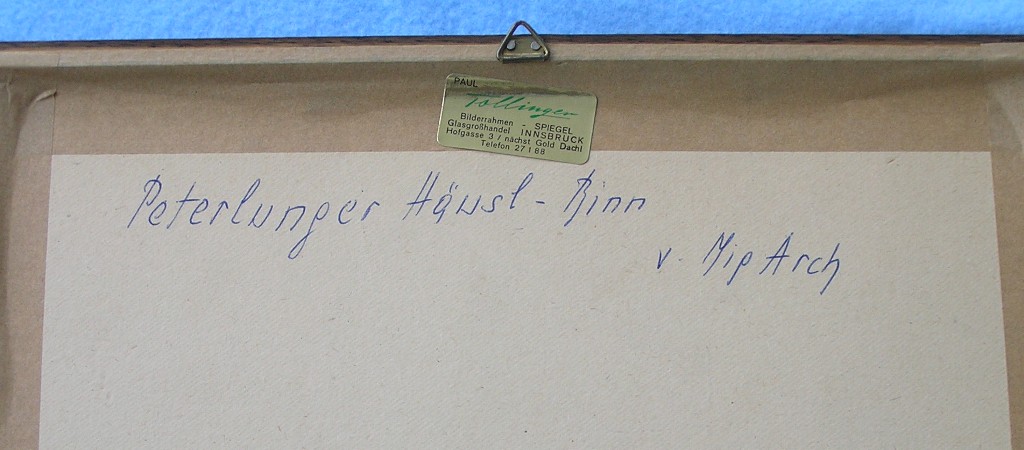 PAUL
Tollinger
Bilderrahmen - SPIEGEL
Glasgroßhandel INNSBRUCK
Hofgasse 3 / nächst Gold Dachl
Telefon 27188
Peterlunger Häusl - Rinn
v. Mip Arch